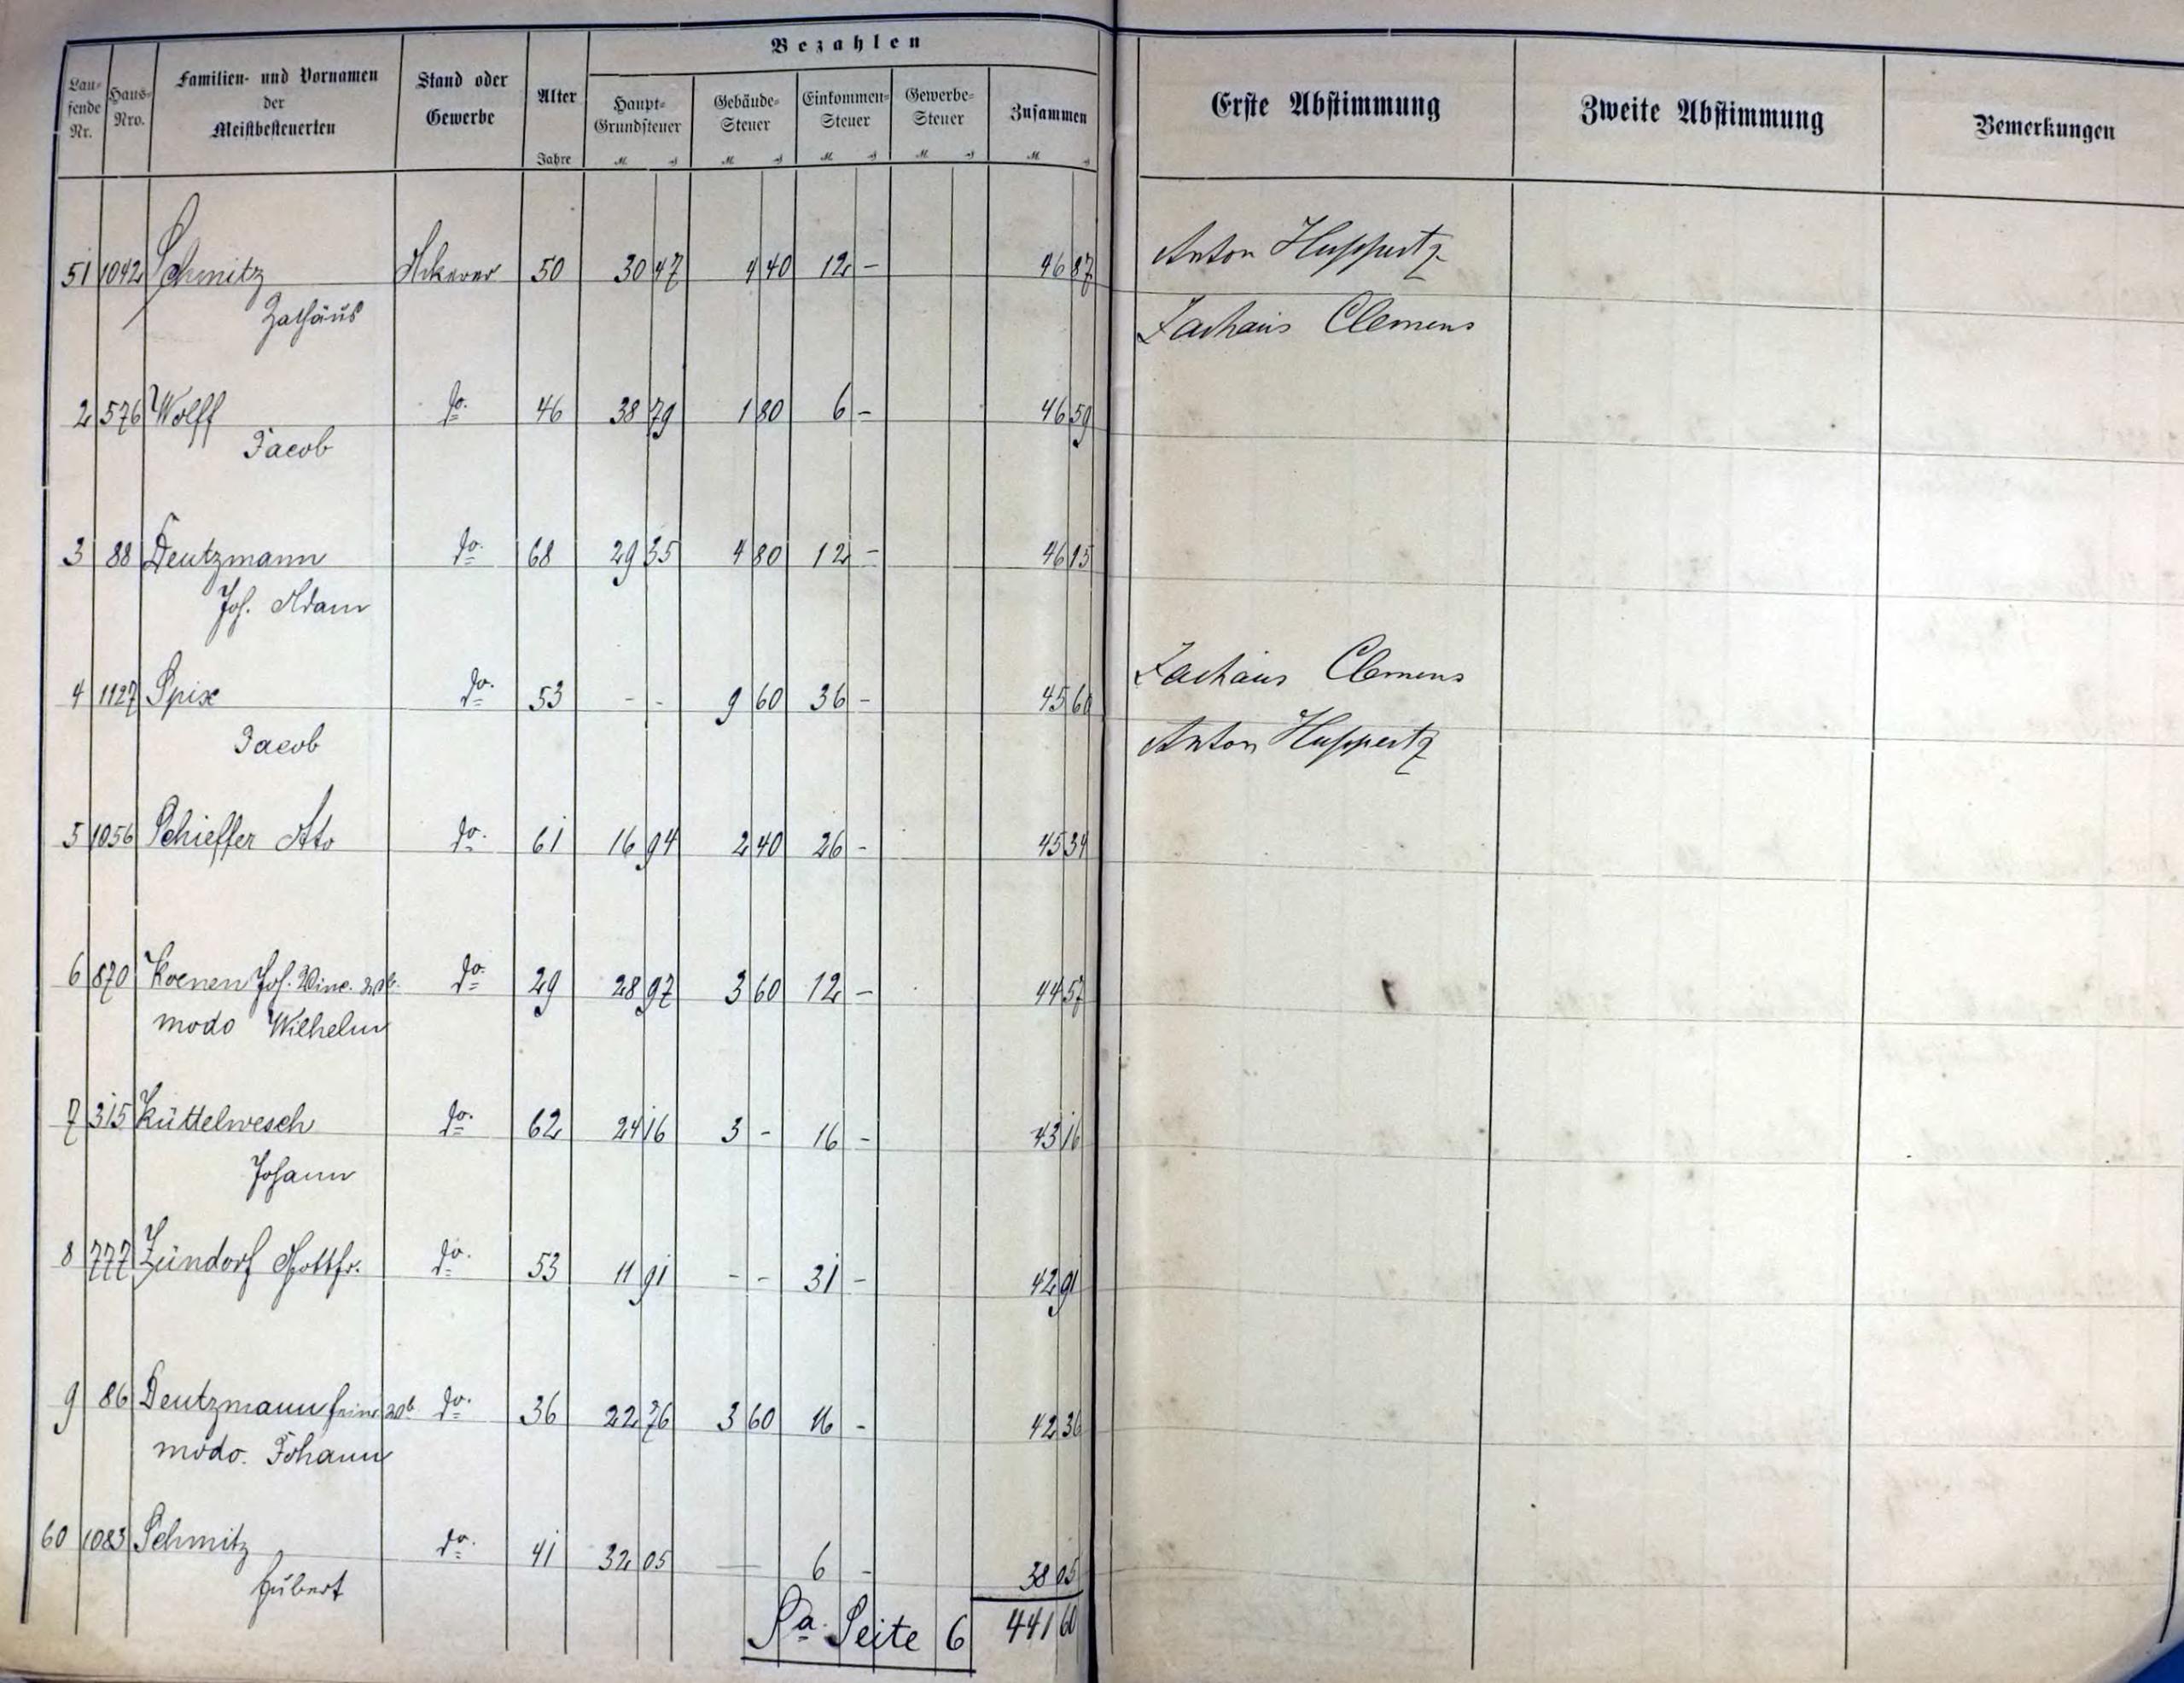 Bezahlen
Lau-
fende
Nr.
Haus-
Nro.
Familien- und Vornamen
der
Meistbesteuerten
Stand oder
Gewerbe
Alter
Jahre
Haupt-
Grundsteuer
Gebäude-
Steuer
Einkommen-
Steuer
Gewerbe-
Steuer
Zusammen
Erste Abstimmung
Zweite Abstimmung
Bemerkungen
51 1042 Schmitz Ackerer 50 30 47 4 40 12 - 46 87 Anton Huppertz
Zachäus Zachäus Clemens
2 576 Wolff do. 46 38 79 1 80 6 - 46 59
Jacob
3 88 Deutzmann do. 68 29 35 4 80 12 - 46 15
Joh. Adam
4 1127 Spix do. 53 - - 9 60 36 - 45 60 Zachäus Clemens
Jacob Anton Huppertz
5 1056 Schieffer Ato do. 61 16 94 2 40 26 - 45 34
6 870 Koenen Joh. Winc. do. 29 28 97 3 60 12 - 44 57
modo Wilhelm
7 315 Küttelwesch do. 62 24 16 3 - 16 - 43 16
Johann
8 777 Zündorf Gottfr. do. 53 11 91 - - 31 - 42 91
9 86 Deutzmann do. 36 22 76 3 60 16 - 42 36
modo. Johann
60 1083 Schmitz do. 41 32 05 — 6 - 38 05
Hubert
Sa. Seite 6 441 60